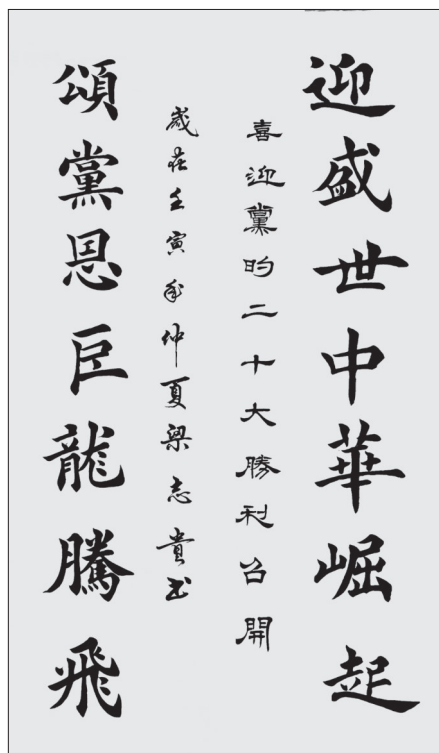 迎盛世中華崛起
喜迎黨的二十大勝利召開
歲在壬寅年仲夏梁志貴書
頌黨恩巨龍騰飛